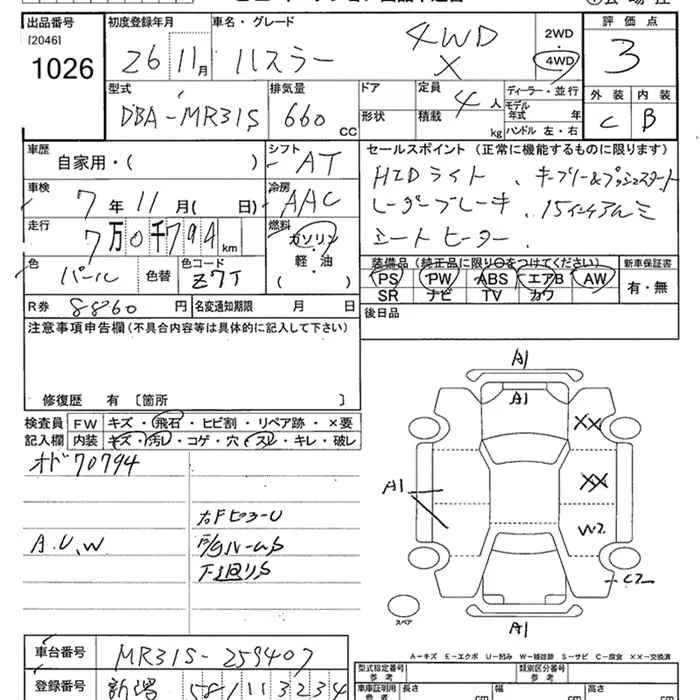 出品番号
[2046]
1026
初度登録年月
26 11月
車名・グレード
ハスラー 4WD X
2WD
・
4WD
評価点
3
外装 内装
C B
型式
DBA-MR31S
排気量
660 CC
ドア
形状
定員
4人
積載 kg
ディーラー・並行
モデル
年式 年
ハンドル 左・右
車歴
自家用・( )
シフト
AT
車検
7年11月( 日)
冷房
AAC
走行
7万0千794km
燃料
ガソリン
・
軽・油
( )
色
パール
色替
色コード
Z7T
R券 8860円
名変通知期限 月 日
セールスポイント (正常に機能するものに限ります)
HIDライト、キーフリー&プッシュスタート
レーダーブレーキ、15インチアルミ
シートヒーター.
装備品 (純正品に限り○をつけてください)
PS PW ABS エアB AW
SR ナビ TV カワ
新車保証書
有・無
後日品
注意事項申告欄(不具合内容等は具体的に記入して下さい)
修復歴 有 〔箇所 〕
検査員
記入欄
FW キズ・飛石・ヒビ割・リペア跡・×要
内装 キズ・汚れ・コゲ・穴・スレ・キレ・破レ
オド70794
A.U.W
A1
A1
XX
XX
A1
W2
C2
A1
スペア
A-キズ E-エクボ U-凹み W-補修跡 S-サビ C-腐食 XX-交換済
車台番号
MR31S-259407
登録番号
新潟 581 け 3234
型式指定番号
参考
類別区分番号
参考
車庫証明用
参考
長さ cm
幅 cm
高さ cm